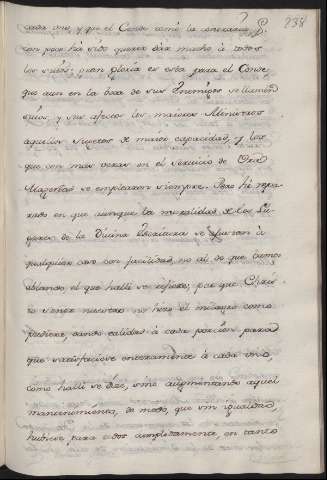 238
cada uno, y que el Conde comò la generacion
con poco há sido querer dár mucho à todos
los suios; gran gloria es esta para el Conde
que aun en la boca de sus Enemigos se llamen
suios, y sus afectos los maiores Ministros
aquellos sugetos de maior capacidad, y los
que con mas veras en el servicio de Vras
Magestades se emplearon siempre. Pero hé repa-
rado en que aunque la moralidad de los Lu-
gares de la Divina Escritura se ajustan à
qualquier caso con facilidad, no al de que vamos
ablando, el que halli se refiere; por que Chris-
to Señor nuestro no hizo el milagro como
pudiera, dando calidad à cada porcion para
que satisfaciese enteramente à cada uno,
como halli se dice, sinó augmentando aquel
mantenimiento, de modo, que sin igualdad,
hubiese para todos cumplidamente, en tanto